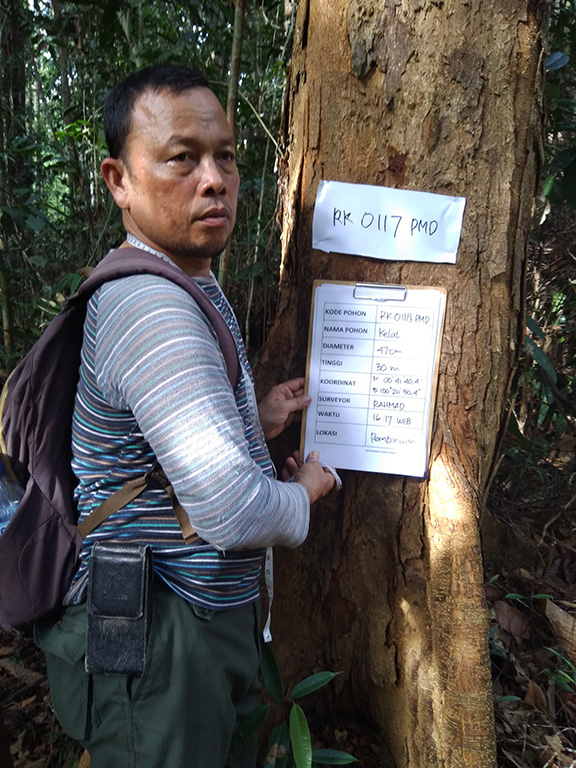 RK 0117 PMD
KODE POHON RK 0118 PMD
NAMA POHON Kelat
DIAMETER 47cm
TINGGI 30 m
KOORDINAT 00° 41' 40,4"
100° 20' 50,4"
SURVEYOR RAHMAD
WAKTU 16.17 WIB
LOKASI